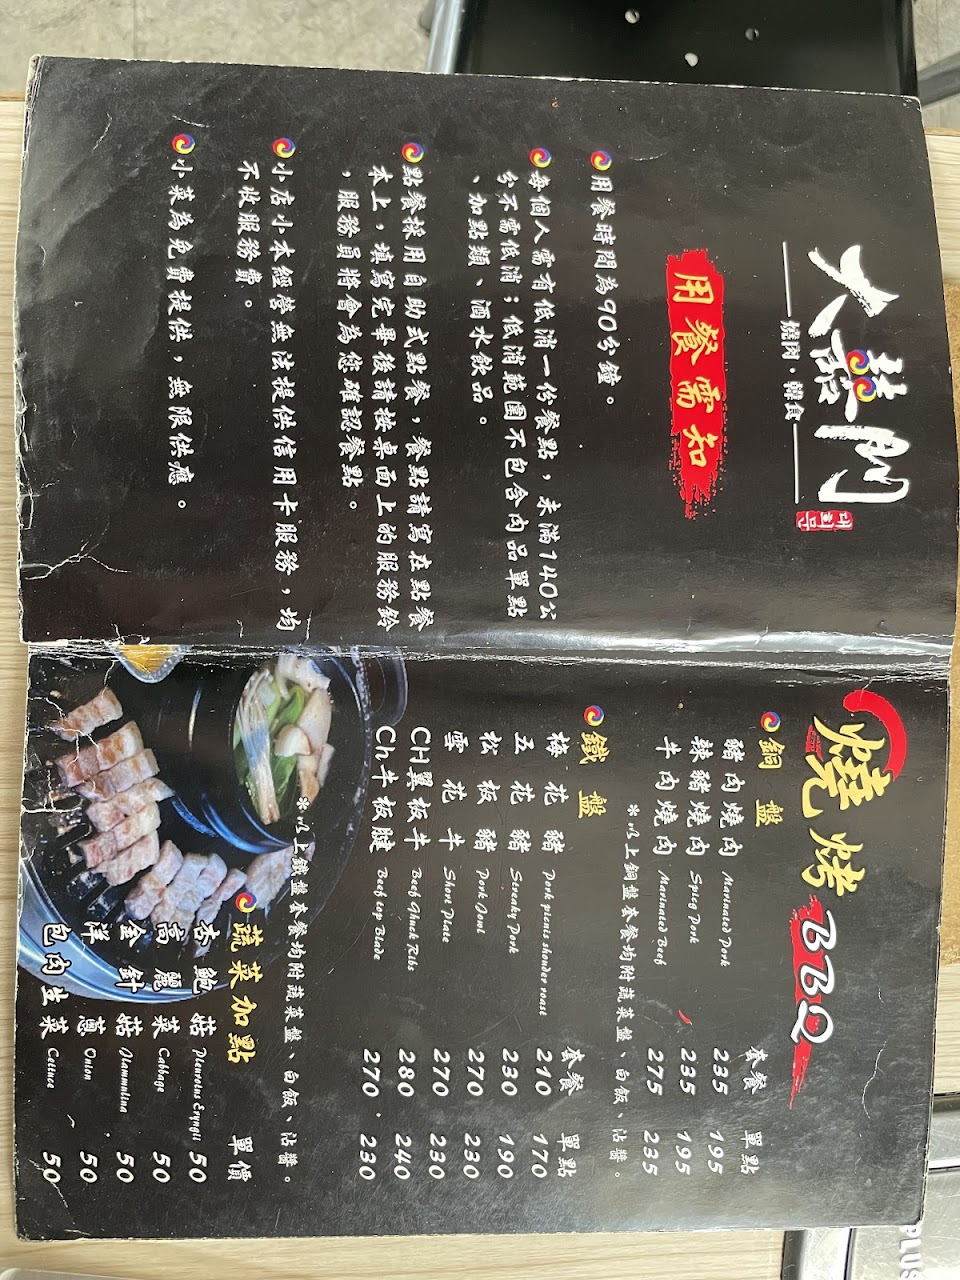 大喜門
燒肉·韓食
대희문
用餐需知
用餐時間為90分鐘。
每個人需有低消一份餐點，未滿140公
分不需低消；低消範圍不包含肉品單點
、加點類、酒水飲品。
點餐採用自助式點餐，餐點請寫在點餐
本上，填寫完畢後請按桌面上的服務鈴
，服務員將會為您確認餐點。
小店小本經營無法提供信用卡服務，均
不收服務費。
小菜為免費提供，無限供應。
燒烤 BBQ
銅盤 套餐 單點
豬肉燒肉 Marinated Pork 235 195
辣豬燒肉 Spicy Pork 235 195
牛肉燒肉 Marinated Beef 275 235
※以上銅盤套餐均附蔬菜盤、白飯、沾醬。
鐵盤 套餐 單點
梅花豬 Pork picnis shonder roast 210 170
五花豬 Streaky Pork 230 190
松板豬 Pork Jowl 270 230
雪花牛 Short Plate 270 230
CH翼板牛 Beef Chuck Ribs 280 240
Ch牛板腱 Beef top Blade 270 230
※以上鐵盤套餐均附蔬菜盤、白飯、沾醬。
蔬菜加點 單價
杏鮑菇 Pleurotus Eryngii 50
高麗菜 Cabbage 50
金針菇 Flammulina 50
洋蔥 Onion 50
包肉生菜 Cettuce 50
PLUS